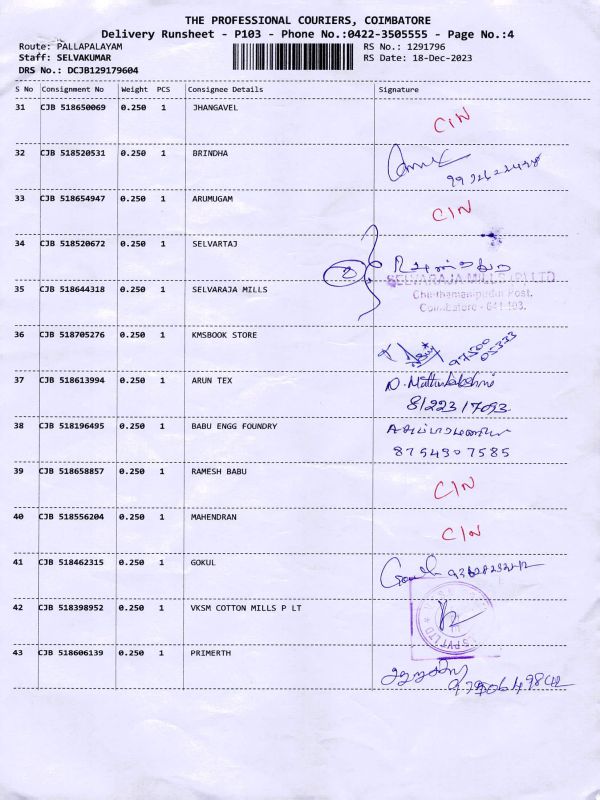 THE PROFESSIONAL COURIERS, COIMBATORE
Delivery Runsheet - P103 - Phone No.:0422-3505555 - Page No.:4
Route: PALLAPALAYAM RS No.: 1291796
Staff: SELVAKUMAR RS Date: 18-Dec-2023
DRS No.: DCJB129179604
S No Consignment No Weight PCS Consignee Details Signature
31 CJB 518650069 0.250 1 JHANGAVEL CIN
32 CJB 518520531 0.250 1 BRINDHA
33 CJB 518654947 0.250 1 ARUMUGAM CIN
34 CJB 518520672 0.250 1 SELVARTAJ
35 CJB 518644318 0.250 1 SELVARAJA MILLS
SELVARAJA MILLS (P) LTD
Chinthamanipudur Post.
Coimbatore - 641 103.
36 CJB 518705276 0.250 1 KMSBOOK STORE
97500
05333
37 CJB 518613994 0.250 1 ARUN TEX D. Muthulakshmi
8122317093
38 CJB 518196495 0.250 1 BABU ENGG FOUNDRY
8754907585
39 CJB 518658857 0.250 1 RAMESH BABU CIN
40 CJB 518556204 0.250 1 MAHENDRAN CIN
41 CJB 518462315 0.250 1 GOKUL
42 CJB 518398952 0.250 1 VKSM COTTON MILLS P LT
43 CJB 518606139 0.250 1 PRIMERTH